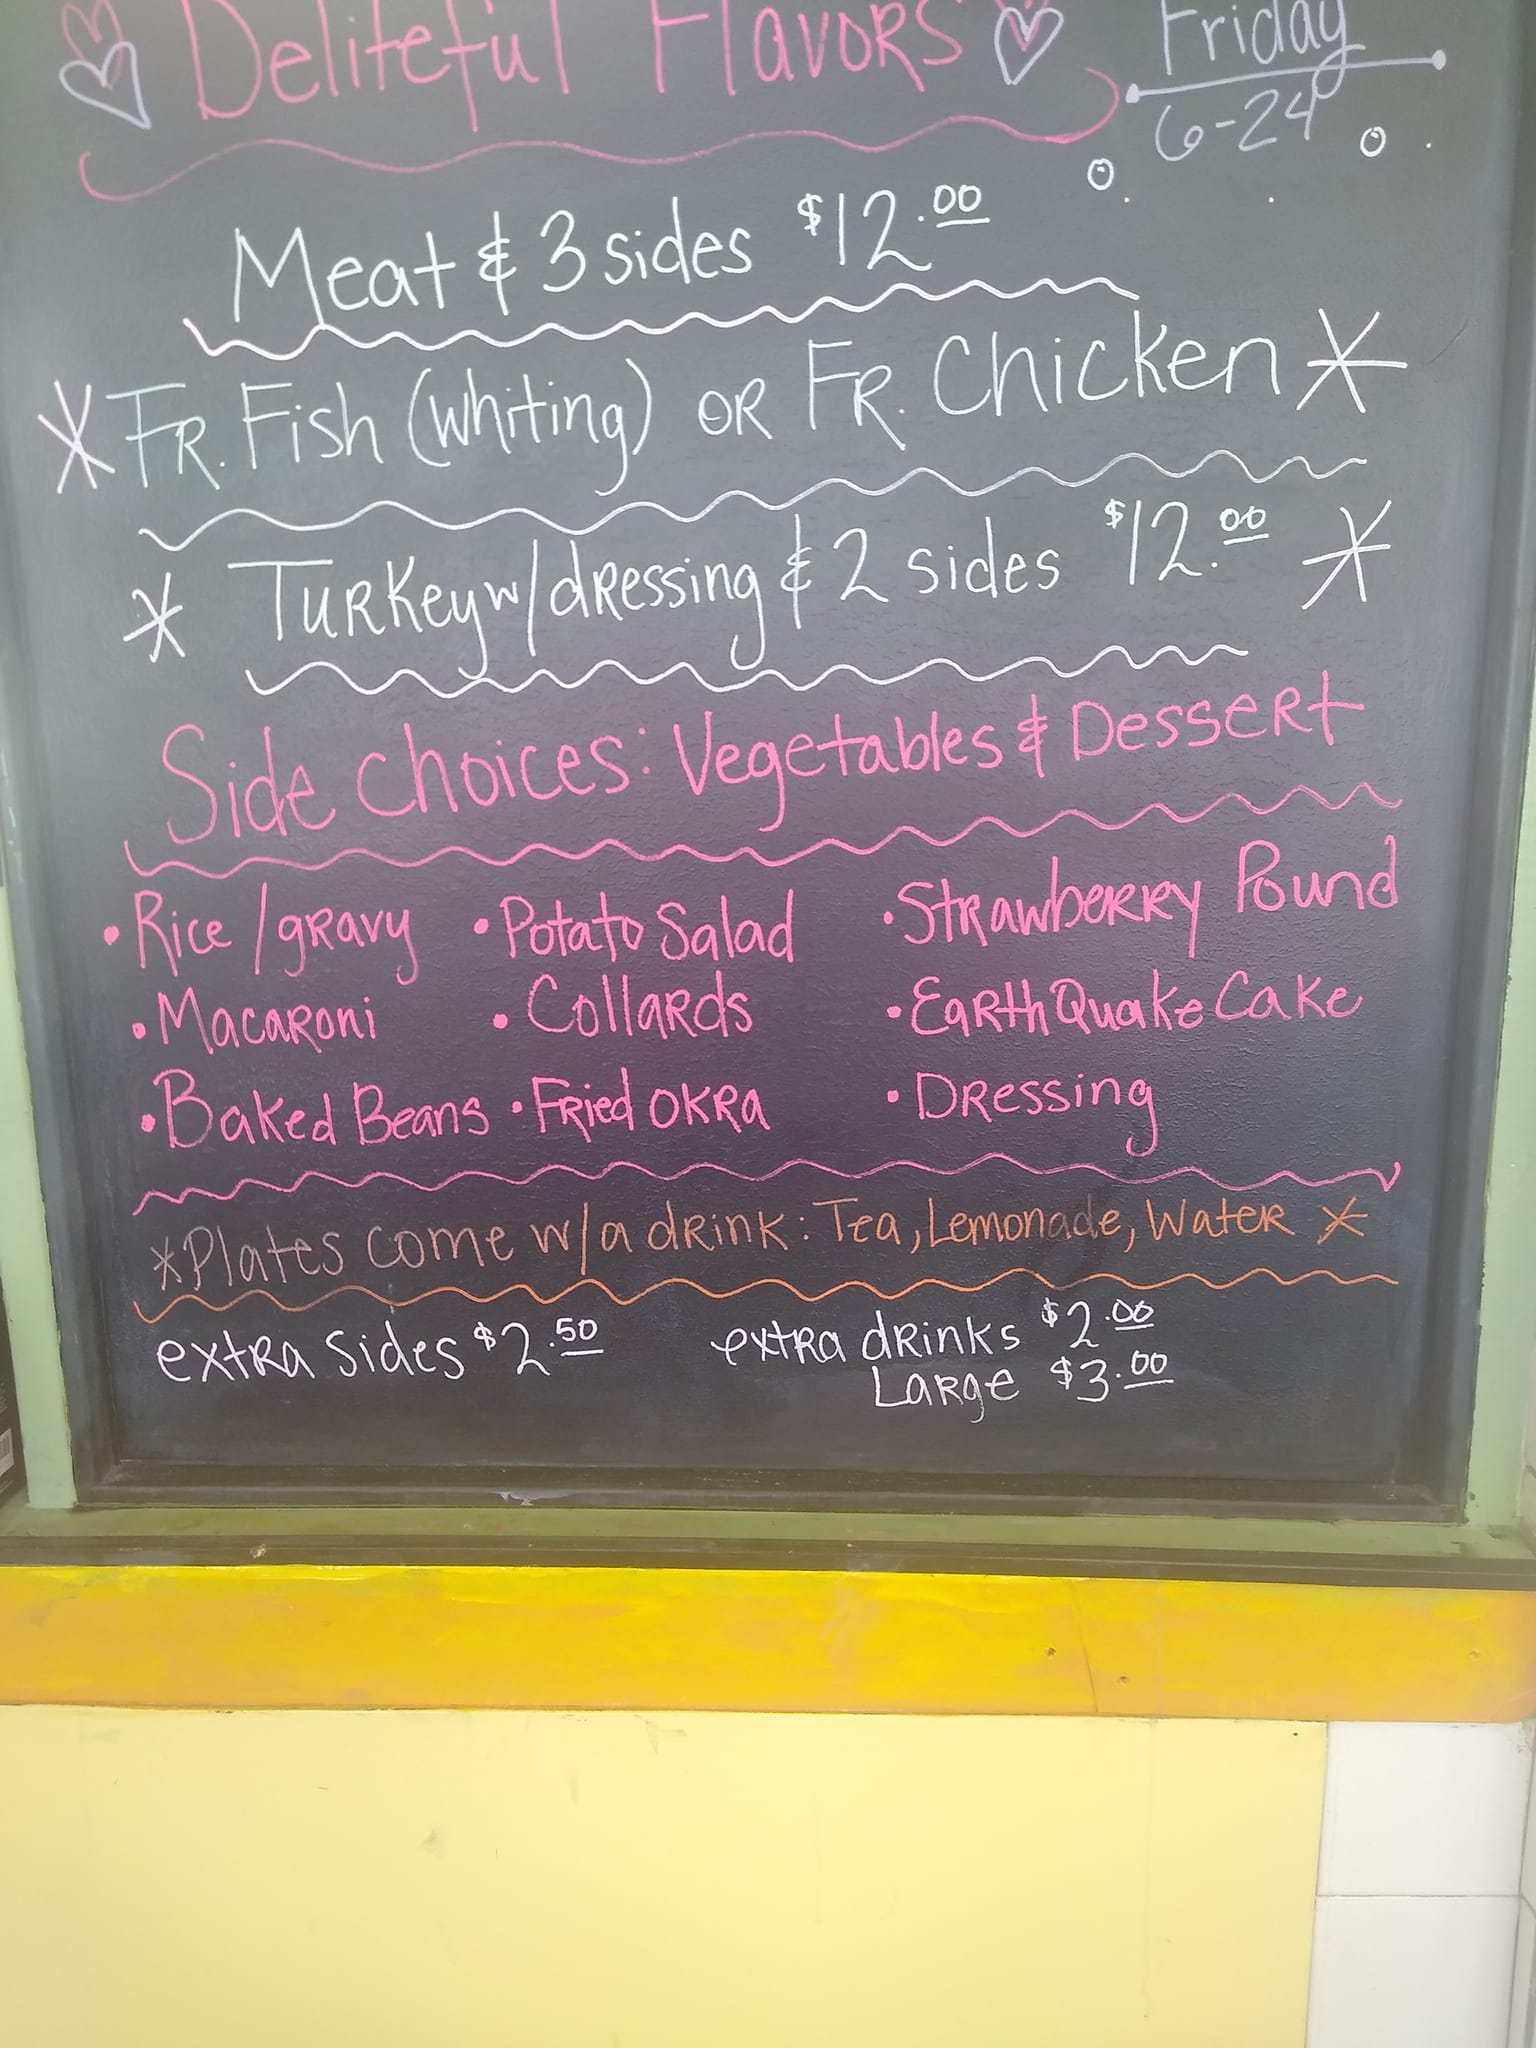 Deliteful Flavors
Friday
6-24
Meat & 3 sides $12.00
*FR. Fish (whiting) OR FR. Chicken*
* Turkey w/dressing & 2 sides $12.00 *
Side Choices: Vegetables & Dessert
• Rice /gravy • Potato Salad • Strawberry Pound
• Macaroni • Collards • EarthQuake Cake
• Baked Beans • Fried OKRA • Dressing
*Plates come w/a drink: Tea, Lemonade, Water *
extra sides $2.50 extra drinks $2.00
Large $3.00